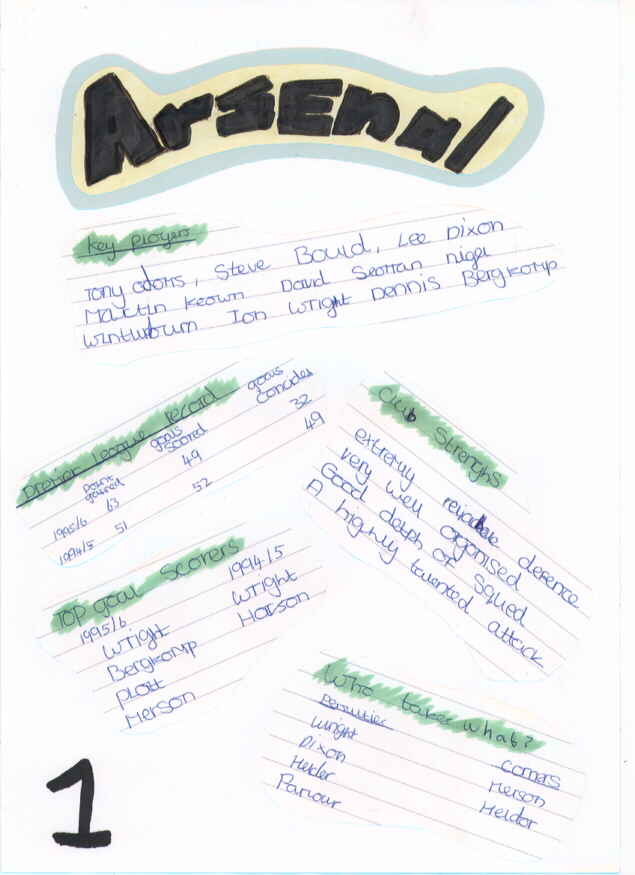 ArsEnal
Key Players
Tony Adams, Steve Bould, Lee Dixon
Martin Keown David Seaman Nigel
Winturburn Ian Wright Dennis Bergkamp
Premier League record
points gained goals scored goals concided
1995/6 63 49 32
1994/5 51 52 49
Club Strenghs
extremly reliable defence
very well organised
Good depth of squad
A highly talented attack
Top goal scorers
1995/6 1994/5
Wright Wright
Bergkamp Harson
Platt
Merson
Who takes what?
Penalties Corners
Wright Merson
Dixon Heldor
Helder
Parlour
1